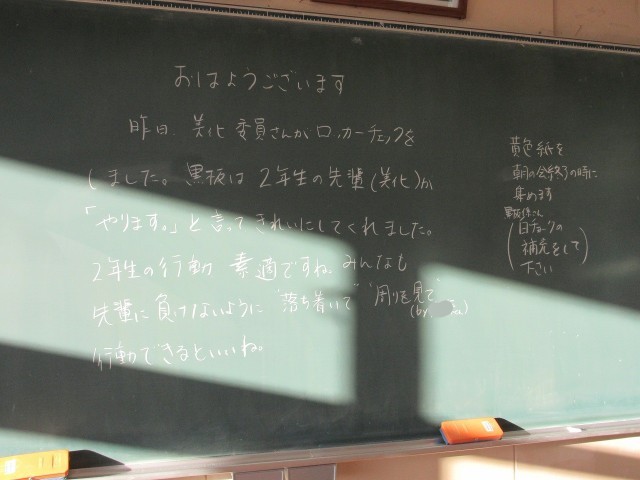 おはようございます
昨日、美化委員さんがロッカーチェックを
しました。黒板は2年生の先輩(美化)が
「やります。」と言ってきれいにしてくれました。
2年生の行動 素適ですね。みんなも
先輩に負けないように "落ち着いて" "周りを見て"
(by.
行動できるといいね。
黄色紙を
朝の会終了の時に
集めます
黒板係さん
(白チョークの
補充をして
下さい)